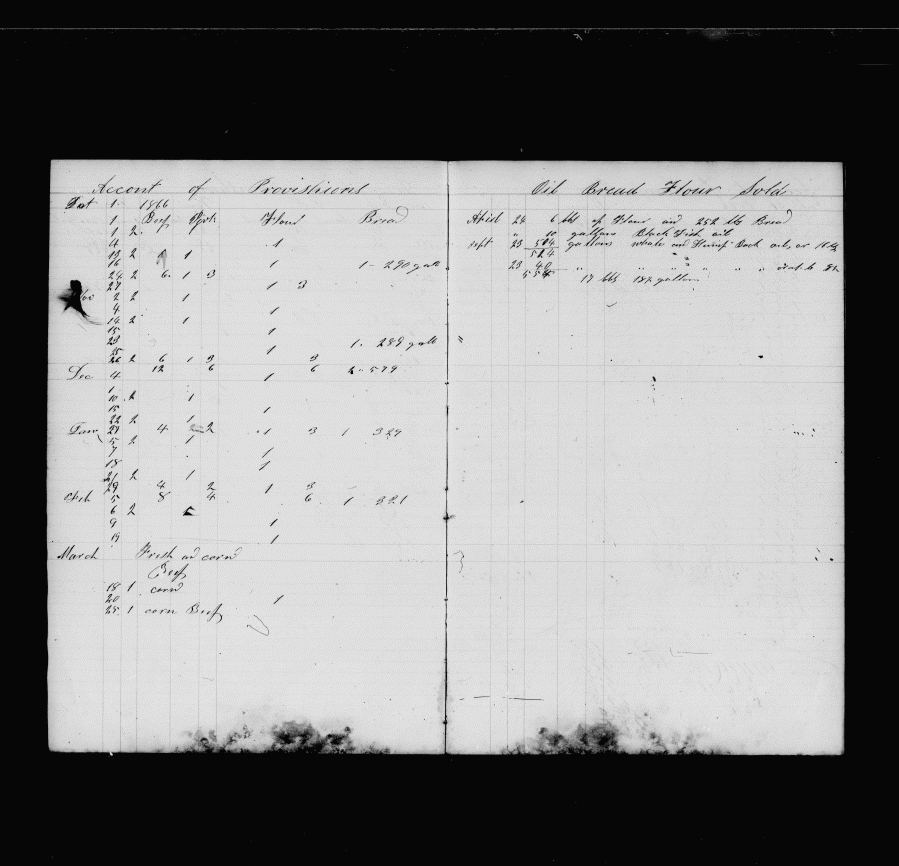 Accont of Provistiions
Oct 1 1866
1 Beef Pork Flour Bread
1 2
4 1
12 2 1
16 1 1- 290 galls
24 2 6 1 3
27 1 3
Nov 2 2 1
4 1
14 2 1
15 1
23 1- 289 galls
25 1
26 2 6 1 3 3
Dec 4 12 6 1 6 2- 579
1
10 2 1
15 1
22 2 1
27 4 2 1 3 1 329
Jan 5 2 1
7 1
18 1
21 2 1
29 4 2 1 3
Feb 5 8 4 6 1 321
6 2
9 1
19 1
March Fresh and corn'd
Beef
18 1 corn'd
20 1
25 1 corn Beef
Oil Bread Flour Sold
April 24 6 lbs of Flour and 252 lbs Bread
" 10 gallons Black Fish oil
Sept 23 514 gallons whale and Hump Back oil, or 16
524
23 40 " " " " " "
17 bbls 18½ gallons